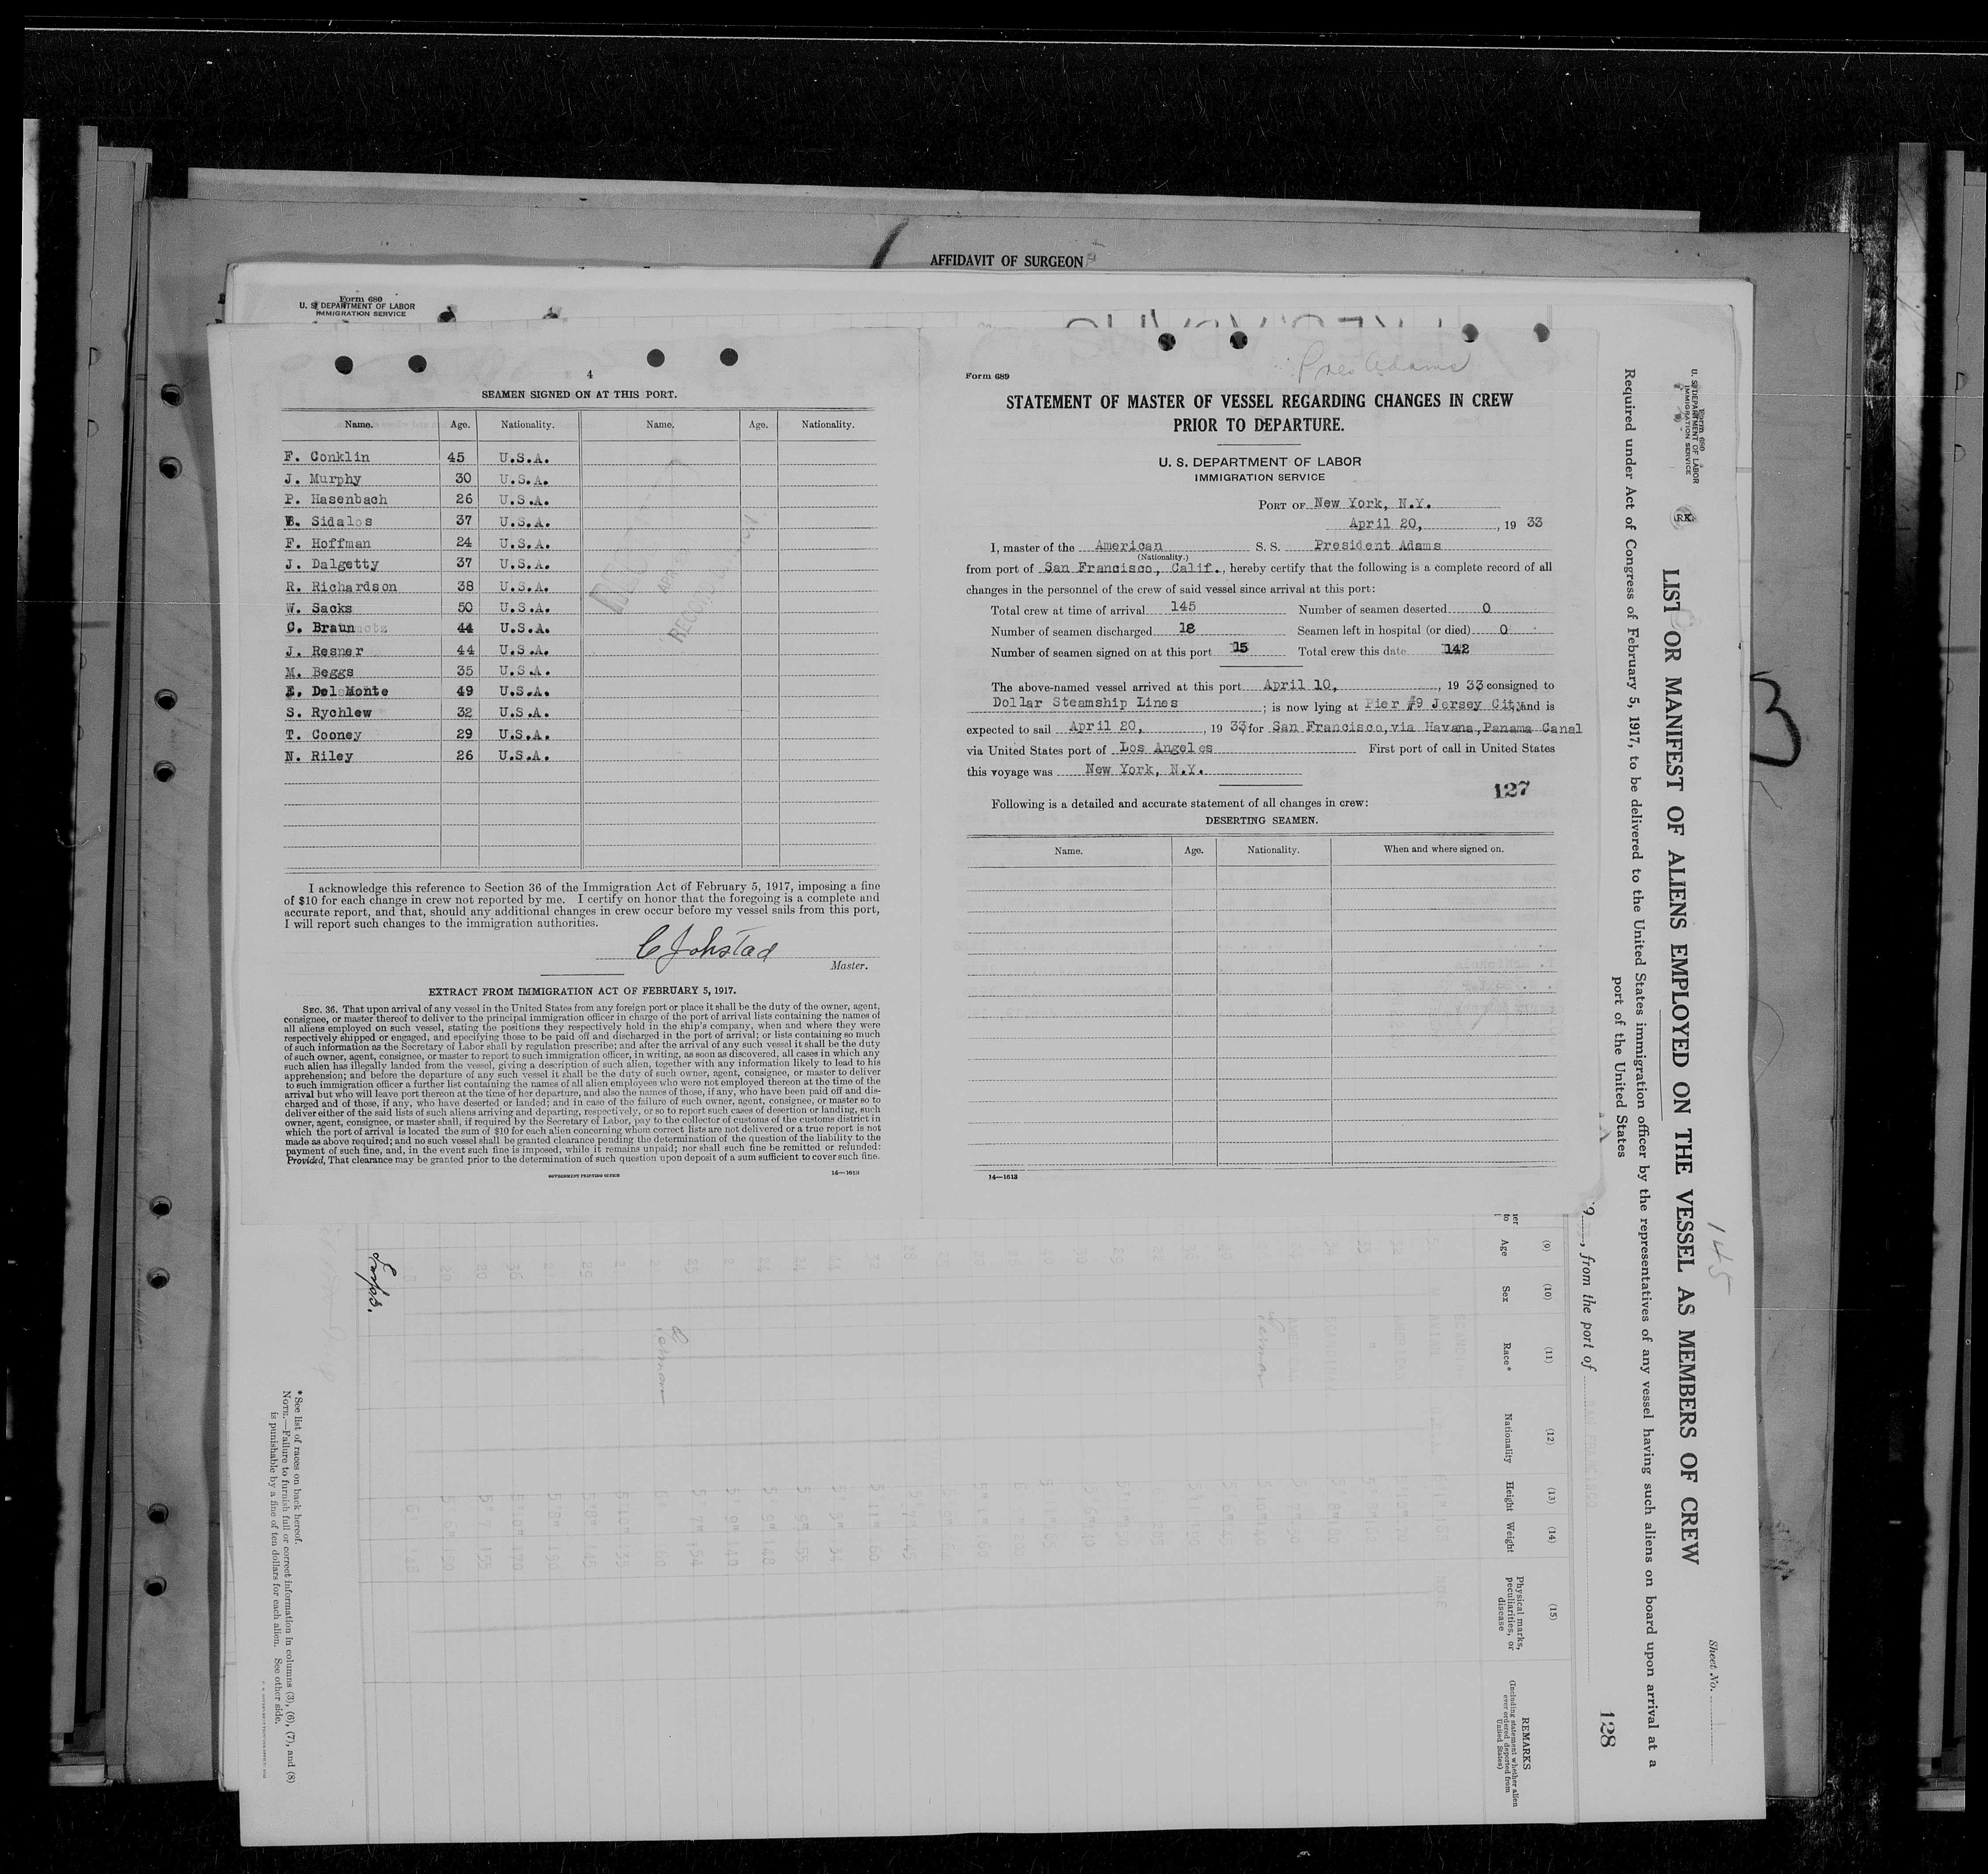 AFFIDAVIT OF SURGEON
Form 680
U. S. DEPARTMENT OF LABOR
IMMIGRATION SERVICE
4
SEAMEN SIGNED ON AT THIS PORT.
Name. Age. Nationality. Name. Age. Nationality.
F. Conklin 45 U.S.A.
J. Murphy 30 U.S.A.
P. Hasenbach 26 U.S.A.
B. Sidalos 37 U.S.A.
F. Hoffman 24 U.S.A.
J. Dalgetty 37 U.S.A.
R. Richardson 38 U.S.A.
W. Sacks 50 U.S.A.
C. Braun 44 U.S.A.
J. Resner 44 U.S.A.
M. Beggs 35 U.S.A.
E. DelMonte 49 U.S.A.
S. Rychlew 32 U.S.A.
T. Cooney 29 U.S.A.
N. Riley 26 U.S.A.
I acknowledge this reference to Section 36 of the Immigration Act of February 5, 1917, imposing a fine
of $10 for each change in crew not reported by me. I certify on honor that the foregoing is a complete and
accurate report, and that, should any additional changes in crew occur before my vessel sails from this port,
I will report such changes to the immigration authorities.
C Johstad
Master.
EXTRACT FROM IMMIGRATION ACT OF FEBRUARY 5, 1917.
SEC. 36. That upon arrival of any vessel in the United States from any foreign port or place it shall be the duty of the owner, agent,
consignee, or master thereof to deliver to the principal immigration officer in charge of the port of arrival lists containing the names of
all aliens employed on such vessel, stating the positions they respectively hold in the ship's company, when and where they were
respectively shipped or engaged, and specifying those to be paid off and discharged in the port of arrival; or lists containing so much
of such information as the Secretary of Labor shall by regulation prescribe; and after the arrival of any such vessel it shall be the duty
of such owner, agent, consignee, or master to report to such immigration officer, in writing, as soon as discovered, all cases in which any
such alien has illegally landed from the vessel, giving a description of such alien, together with any information likely to lead to his
apprehension; and before the departure of any such vessel it shall be the duty of such owner, agent, consignee, or master to deliver
to such immigration officer a further list containing the names of all alien employees who were not employed thereon at the time of the
arrival but who will leave port thereon at the time of her departure, and also the names of those, if any, who have been paid off and dis-
charged and of those, if any, who have deserted or landed; and in case of the failure of such owner, agent, consignee, or master so to
deliver either of the said lists of such aliens arriving and departing, respectively, or so to report such cases of desertion or landing, such
owner, agent, consignee, or master shall, if required by the Secretary of Labor, pay to the collector of customs of the customs district in
which the port of arrival is located the sum of $10 for each alien concerning whom correct lists are not delivered or a true report is not
made as above required; and no such vessel shall be granted clearance pending the determination of the question of the liability to the
payment of such fine, and, in the event such fine is imposed, while it remains unpaid; nor shall such fine be remitted or refunded:
Provided, That clearance may be granted prior to the determination of such question upon deposit of a sum sufficient to cover such fine.
GOVERNMENT PRINTING OFFICE 14—1613
Pres Adams
Form 689
STATEMENT OF MASTER OF VESSEL REGARDING CHANGES IN CREW
PRIOR TO DEPARTURE.
U. S. DEPARTMENT OF LABOR
IMMIGRATION SERVICE
PORT OF New York, N.Y.
April 20, , 19 33
I, master of the American S. S. President Adams
(Nationality.)
from port of San Francisco, Calif., hereby certify that the following is a complete record of all
changes in the personnel of the crew of said vessel since arrival at this port:
Total crew at time of arrival 145 Number of seamen deserted 0
Number of seamen discharged 18 Seamen left in hospital (or died) 0
Number of seamen signed on at this port 15 Total crew this date 142
The above-named vessel arrived at this port April 10, , 19 33 consigned to
Dollar Steamship Lines ; is now lying at Pier #9 Jersey City and is
expected to sail April 20, , 19 33 for San Francisco, via Havana, Panama Canal
via United States port of Los Angeles First port of call in United States
this voyage was New York, N.Y.
127
Following is a detailed and accurate statement of all changes in crew:
DESERTING SEAMEN.
Name. Age. Nationality. When and where signed on.
14—1613
Form 680
U. S. DEPARTMENT OF LABOR
IMMIGRATION SERVICE
RK
LIST OR MANIFEST OF ALIENS EMPLOYED ON THE VESSEL AS MEMBERS OF CREW
Required under Act of Congress of February 5, 1917, to be delivered to the United States immigration officer by the representatives of any vessel having such aliens on board upon arrival at a
port of the United States
145
Sheet No.
3
, from the port of
128
(9) (10) (11) (12) (13) (14) (15)
Age Sex Race* Nationality Height Weight Physical marks, peculiarities, or disease
REMARKS
(Including statement whether alien
ever ordered deported from
United States)
* See list of races on back hereof.
NOTE.—Failure to furnish full or correct information in columns (3), (6), (7), and (8)
is punishable by a fine of ten dollars for each alien. See other side.